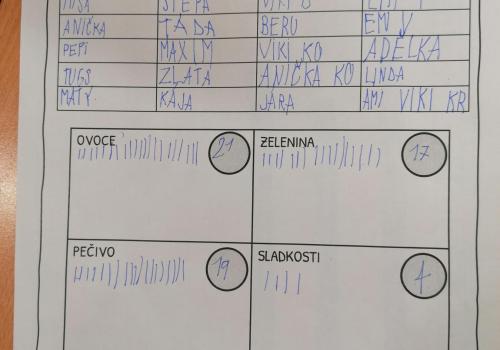 ŠTĚPA
ANIČKA TÁĎA BERU EMI V
PEPI MAXIM VIKI KO ADÉLKA
ZLATA ANIČKA KO LINDA
MATY KÁJA JÁRA AMI VIKI KR
OVOCE 21 ZELENINA 17
PEČIVO 19 SLADKOSTI 4